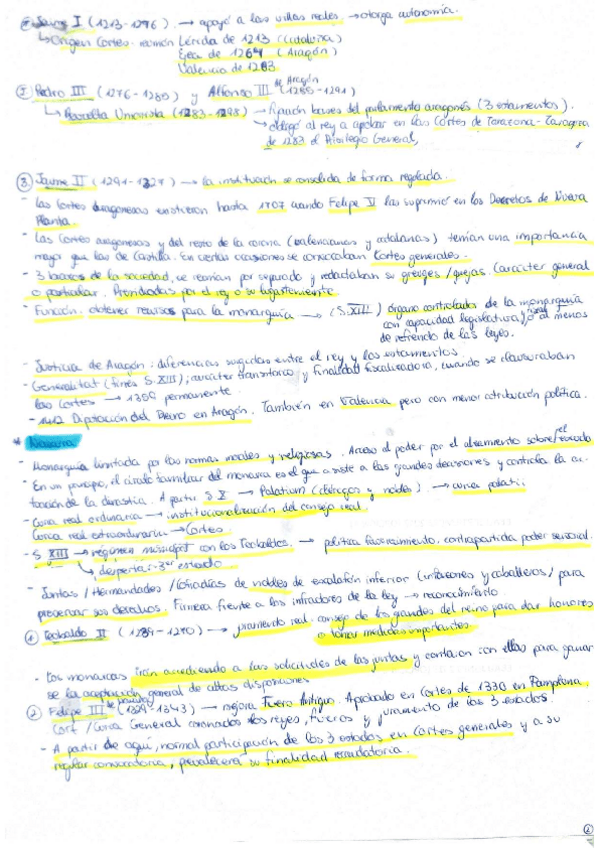 Jaume I (1213-1276). → apoyó a las villas reales. → otorga autonomía.
↳ Origen Cortes: reunión Lérida de 1213 (Cataluña)
Ejea de 1264 (Aragón)
Valencia de 1283
Pedro III (1276-1285) y Alfonso III de Aragón (1285-1291)
↳ Revuelta Unionista (1283-1298) → fijación bases del parlamento aragonés (3 estamentos).
→ obligó al rey a aprobar en las Cortes de Tarazona-Zaragoza
de 1283 el Privilegio General,
③ Jaume II (1291-1327) → La institución se consolida de forma regulada.
- Las Cortes aragonesas existieron hasta 1707 cuando Felipe V las suprimió en los Decretos de Nueva
Planta.
- Las Cortes aragonesas y del resto de la corona (valencianas y catalanas) tenían una importancia
mayor que las de Castilla. En ciertas ocasiones se convocaban Cortes generales.
- 3 brazos de la sociedad, se reunían por separado y redactaban su greuges/quejas. (carácter general
o particular. Atendidas por el rey o su lugarteniente
- Función: obtener recursos para la monarquía → (S. XIII) órgano controlador de la monarquía
con capacidad legislativa y fiscal o al menos
de refrendo de las leyes.
- Justicia de Aragón: diferencias surgidas entre el rey y los estamentos.
- Generalitat (fines S. XIII); carácter transitorio y finalidad fiscalizadora, cuando se clausuraban
las Cortes → 1359 permanente.
- 1412 Diputación del Reino en Aragón. También en Valencia pero con menor atribución política.
* Navarra
- Monarquía limitada por las normas morales y religiosas. Acceso al poder por el alzamiento sobre el escudo
- En un principio, el círculo familiar del monarca es el que asiste a las grandes decisiones y controla la ac-
tuación de la dinastía. A partir S. X → Palatium (clérigos y nobles). → curias palatii
- Curia real ordinaria → institucionalización del consejo real.
Curia real extraordinaria → Cortes
- S. XIII → régimen municipal con los Teobaldos. → política favorecimiento, contrapartida poder señorial.
↳ despertar 3er estado
- Juntas / Hermandades / Cofradías de nobles de escalafón inferior (infanzones y caballeros) para
preservar sus derechos. Firmeza frente a los infractores de la ley → reconocimiento.
① Teobaldo II (1234-1270) → juramento real: consejo de los grandes del reino para dar honores
o tomar medidas importantes.
- Los monarcas irán accediendo a las solicitudes de las juntas y contarán con ellas para ganar
se la aceptación general de altas disposiciones
② Felipe III (1329-1343) → mejora Fuero Antiguo. Aprobado en Cortes de 1330 en Pamplona,
Cort / Curia General coronados los reyes, fueros y juramento de los 3 estados.
- A partir de aquí, normal participación de los 3 estados en Cortes generales y a su
regular convocatoria, prevalecerá su finalidad recaudatoria.